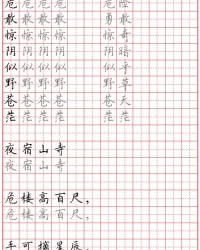 危 危 危 危 危 险
敢 敢 敢 敢 勇 敢
惊 惊 惊 惊 惊 奇
阴 阴 阴 阴 阴 暗
似 似 似 似 似 乎
野 野 野 野 野 草
苍 苍 苍 苍 苍 天
茫 茫 茫 茫 茫 茫
夜 宿 山 寺
夜 宿 山 寺
危 楼 高 百 尺，
危 楼 高 百 尺，
手 可 摘 星 辰。